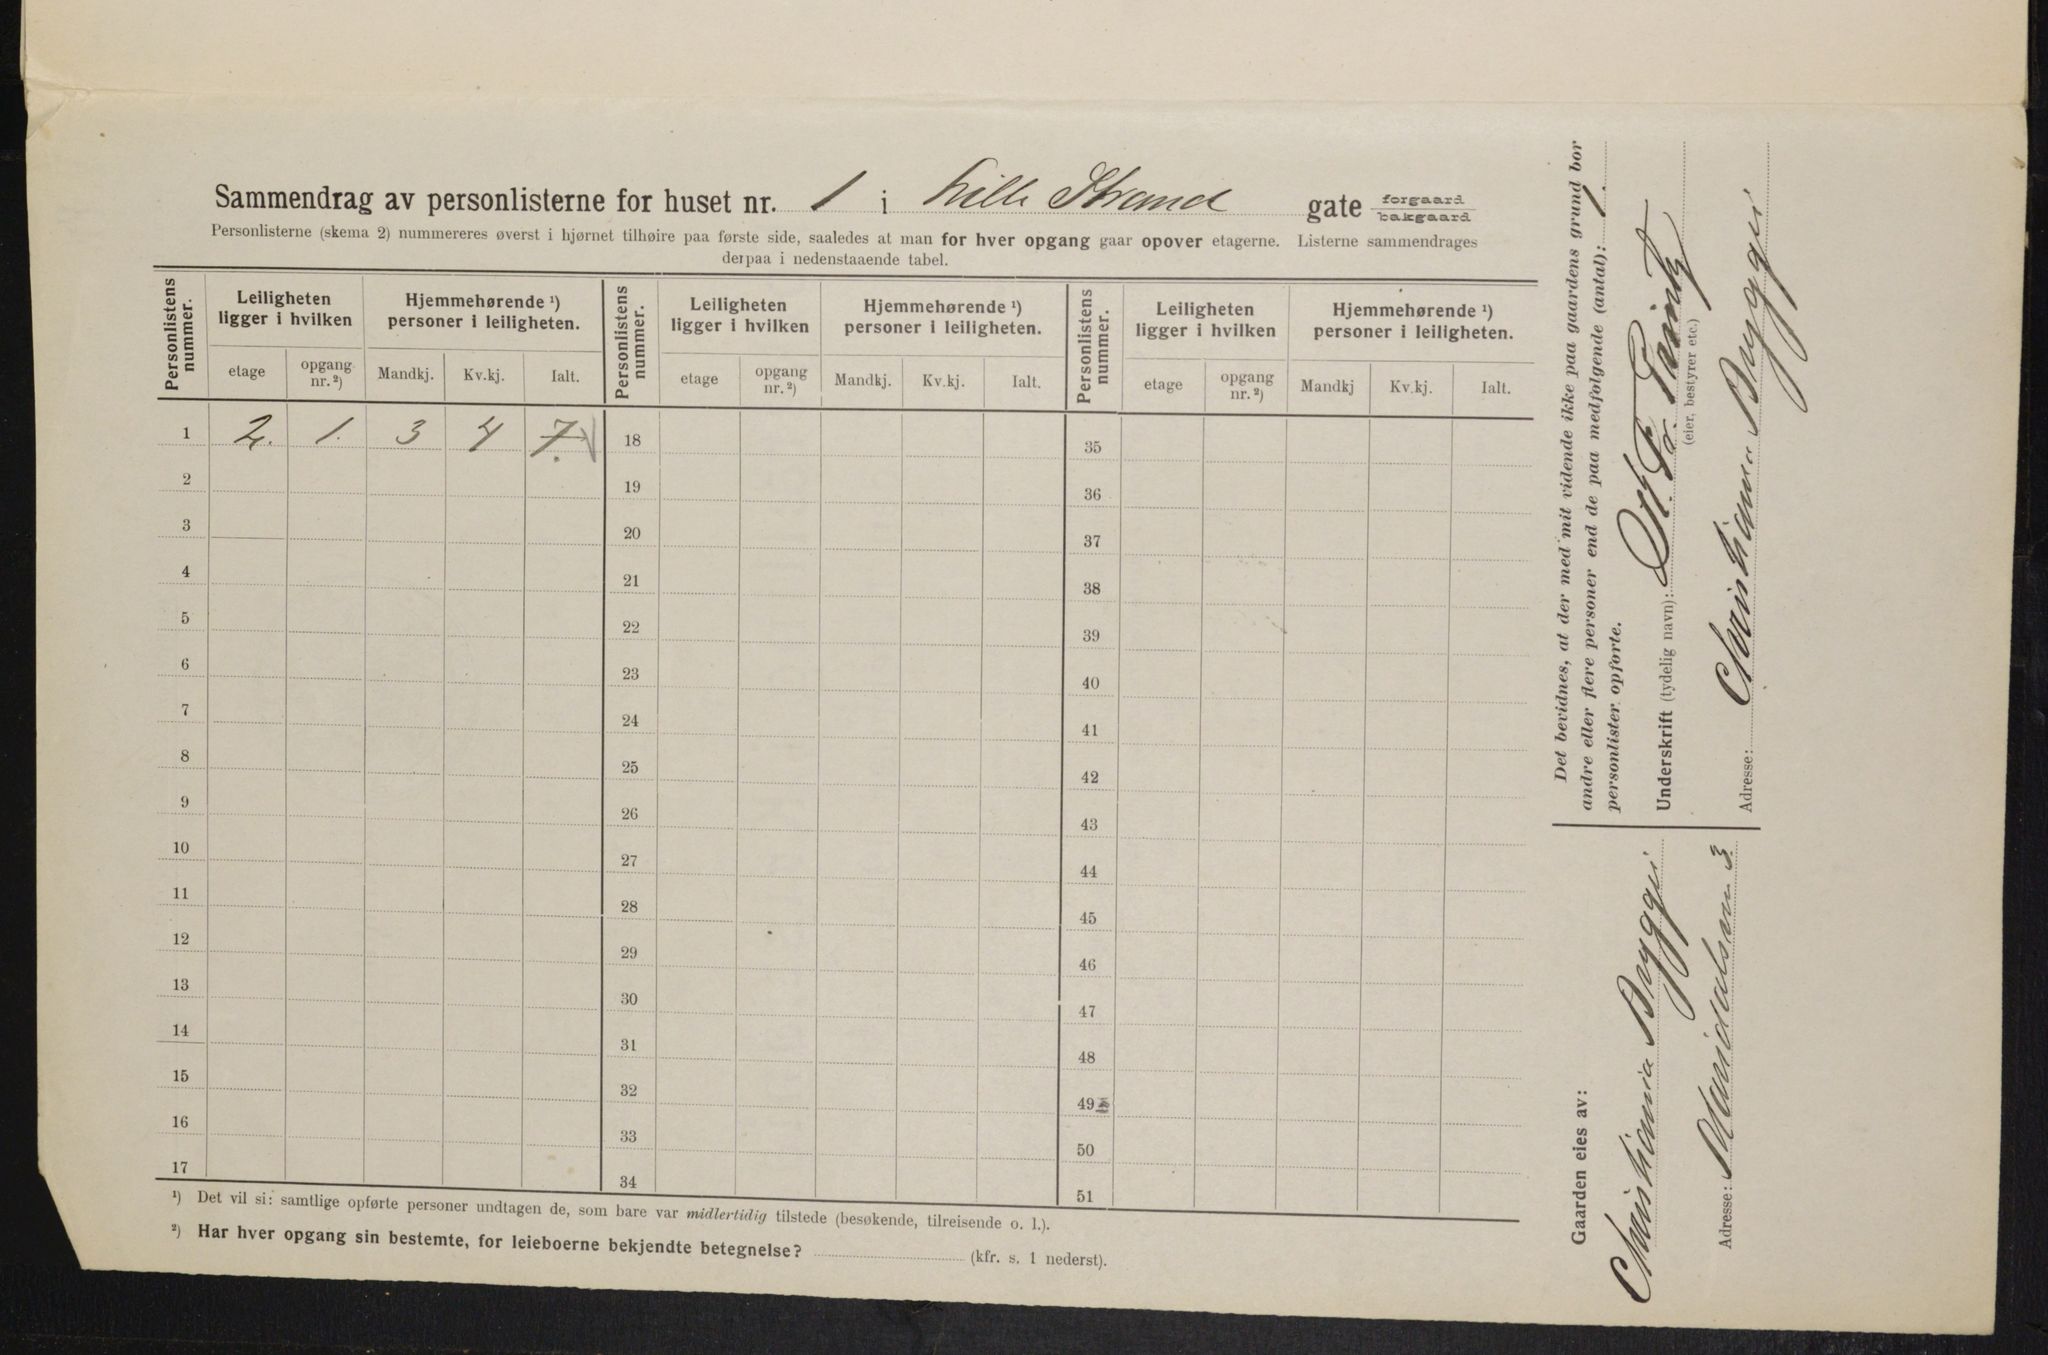 Sammendrag av personlisterne for huset nr. 1 i Lille Strand gate forgaard bakgaard
Personlisterne (skema 2) nummereres øverst i hjørnet tilhøire paa første side, saaledes at man for hver opgang gaar opover etagerne. Listerne sammendrages
derpaa i nedenstaaende tabel.
Personlistens nummer. Leiligheten ligger i hvilken Hjemmehørende ¹) personer i leiligheten. Personlistens nummer. Leiligheten ligger i hvilken Hjemmehørende ¹) personer i leiligheten. Personlistens nummer. Leiligheten ligger i hvilken Hjemmehørende ¹) personer i leiligheten.
etage opgang nr. ²) Mandkj. Kv.kj. Ialt. etage opgang nr. ²) Mandkj. Kv.kj. Ialt. etage opgang nr. ²) Mandkj Kv.kj. Ialt.
1 2. 1. 3 4 7. 18 35
2 19 36
3 20 37
4 21 38
5 22 39
6 23 40
7 24 41
8 25 42
9 26 43
10 27 44
11 28 45
12 29 46
13 30 47
14 31 48
15 32 49
16 33 50
17 34 51
¹) Det vil si: samtlige opførte personer undtagen de, som bare var midlertidig tilstede (besøkende, tilreisende o. l.).
²) Har hver opgang sin bestemte, for leieboerne bekjendte betegnelse? (kfr. s. 1 nederst).
Det bevidnes, at der med mit vidende ikke paa gaardens grund bor
andre eller flere personer end de paa medfølgende (antal): 1.
personlister opførte.
Underskrift (tydelig navn):
(eier, bestyrer etc.)
Adresse: Christiania Bryggeri
Gaarden eies av:
Christiania Bryggeri
Adresse: 3.